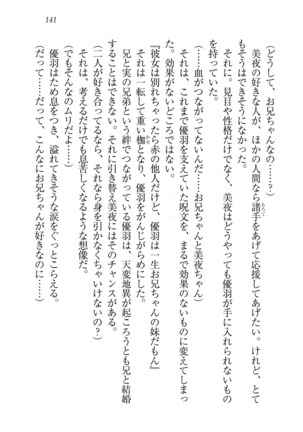 141
(どうして、お兄ちゃんなの……?)
美夜の好きな人が、ほかの人間なら諸手をあげて応援してあげたい。けれど、とて
もできそうになかった。
それに、見目や性格だけでなく、美夜はどうやっても優羽が手に入れられないもの
を持っていた。
(……血がつながってないんだ……お兄ちゃんと美夜ちゃん)
これまで、くじけかける優羽を支えていた呪文を、まるで効果のないものに変えてし
まった。効果がないどころではない。
『彼女は別れちゃったら赤の他人だけど、優羽は一生お兄ちゃんの妹だもん』
それは一転して重い枷となり、優羽をがんじがらめにした。
兄と実の兄弟という絆でつながっている優羽は、天変地異が起ころうとも兄と結婚
することはできない。それに引き替え美夜にはそのチャンスがある。
(二人が好き合ってるなら、それなら身を引かなくちゃいけないのかな)
それは、考えるだけでも息苦しくなるような想像だ。
(でもそんなのムリだよ……)
優羽はため息をつき、溢れてきそうな涙をぐっとこらえる。
(だって……だって、こんなにお兄ちゃんが好きなのに……)